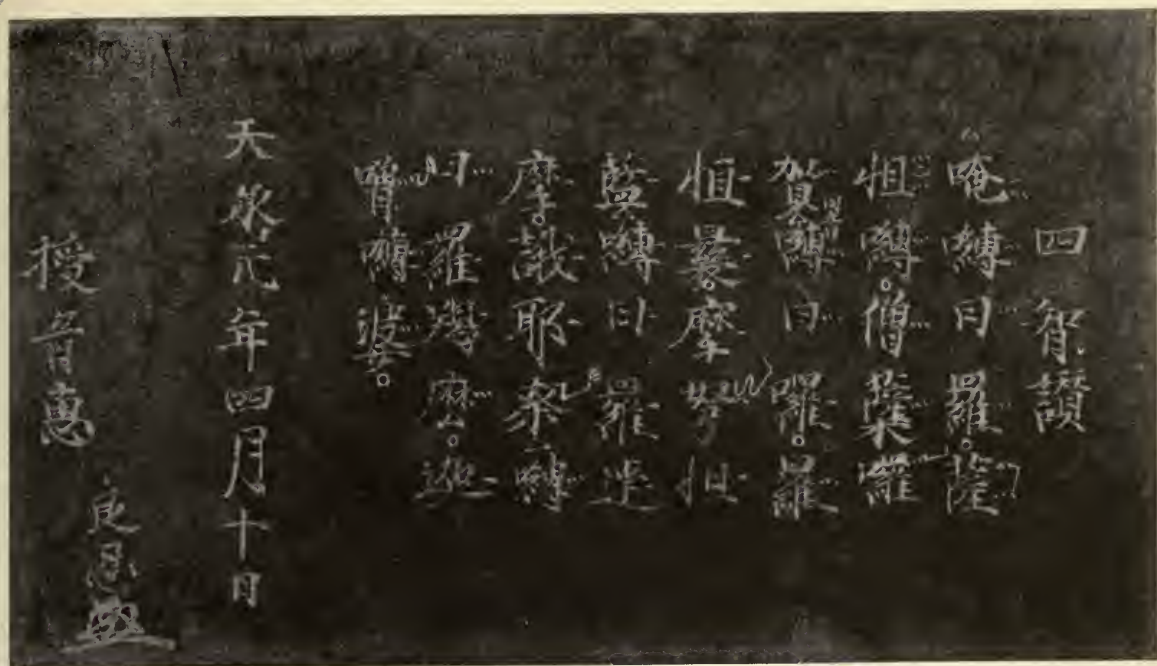 四智讃
唵嚩日羅。薩
怛嚩。僧蘖囉
賀嚩日囉。羅
怛曩。摩弩怛
藍嚩日羅達
摩。誐耶柰。嚩
日羅羯麼。迦
嚕嚩婆。
天承元年四月十日
授音惠
良忍